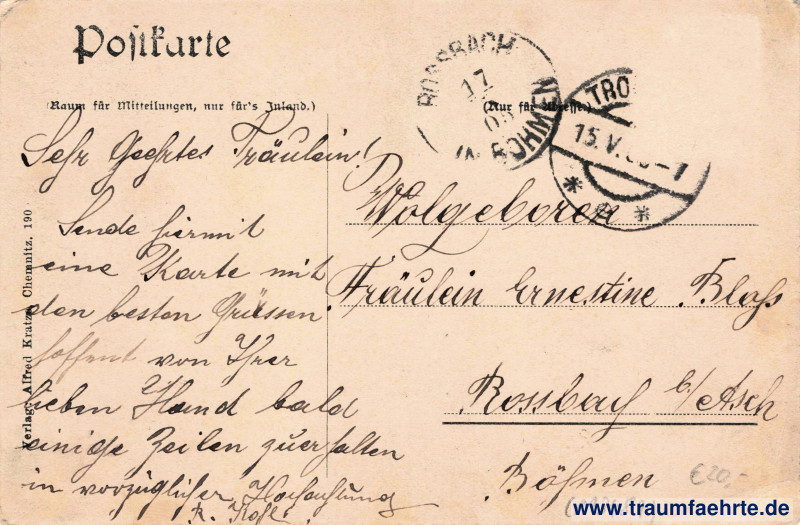 Postkarte
(Raum für Mitteilungen, nur für's Inland.)
(Nur für Adresse.)
ROSSBACH
17
IN BÖHMEN
TRO
15.V.
-1
Sehr Geehrtes Fräulein!
Sende hiermit
eine Karte mit
den besten Grüssen
hoffent von Ihrer
lieben Hand bald
einige Zeilen zu erhalten
in vorzüglicher Hochachtung
Wolgeboren
Fräulein Ernestine Bloss
Rossbach b/Asch
Böhmen
Verlag: Alfred Kratze, Chemnitz, 190
€20,-
www.traumfaehrte.de